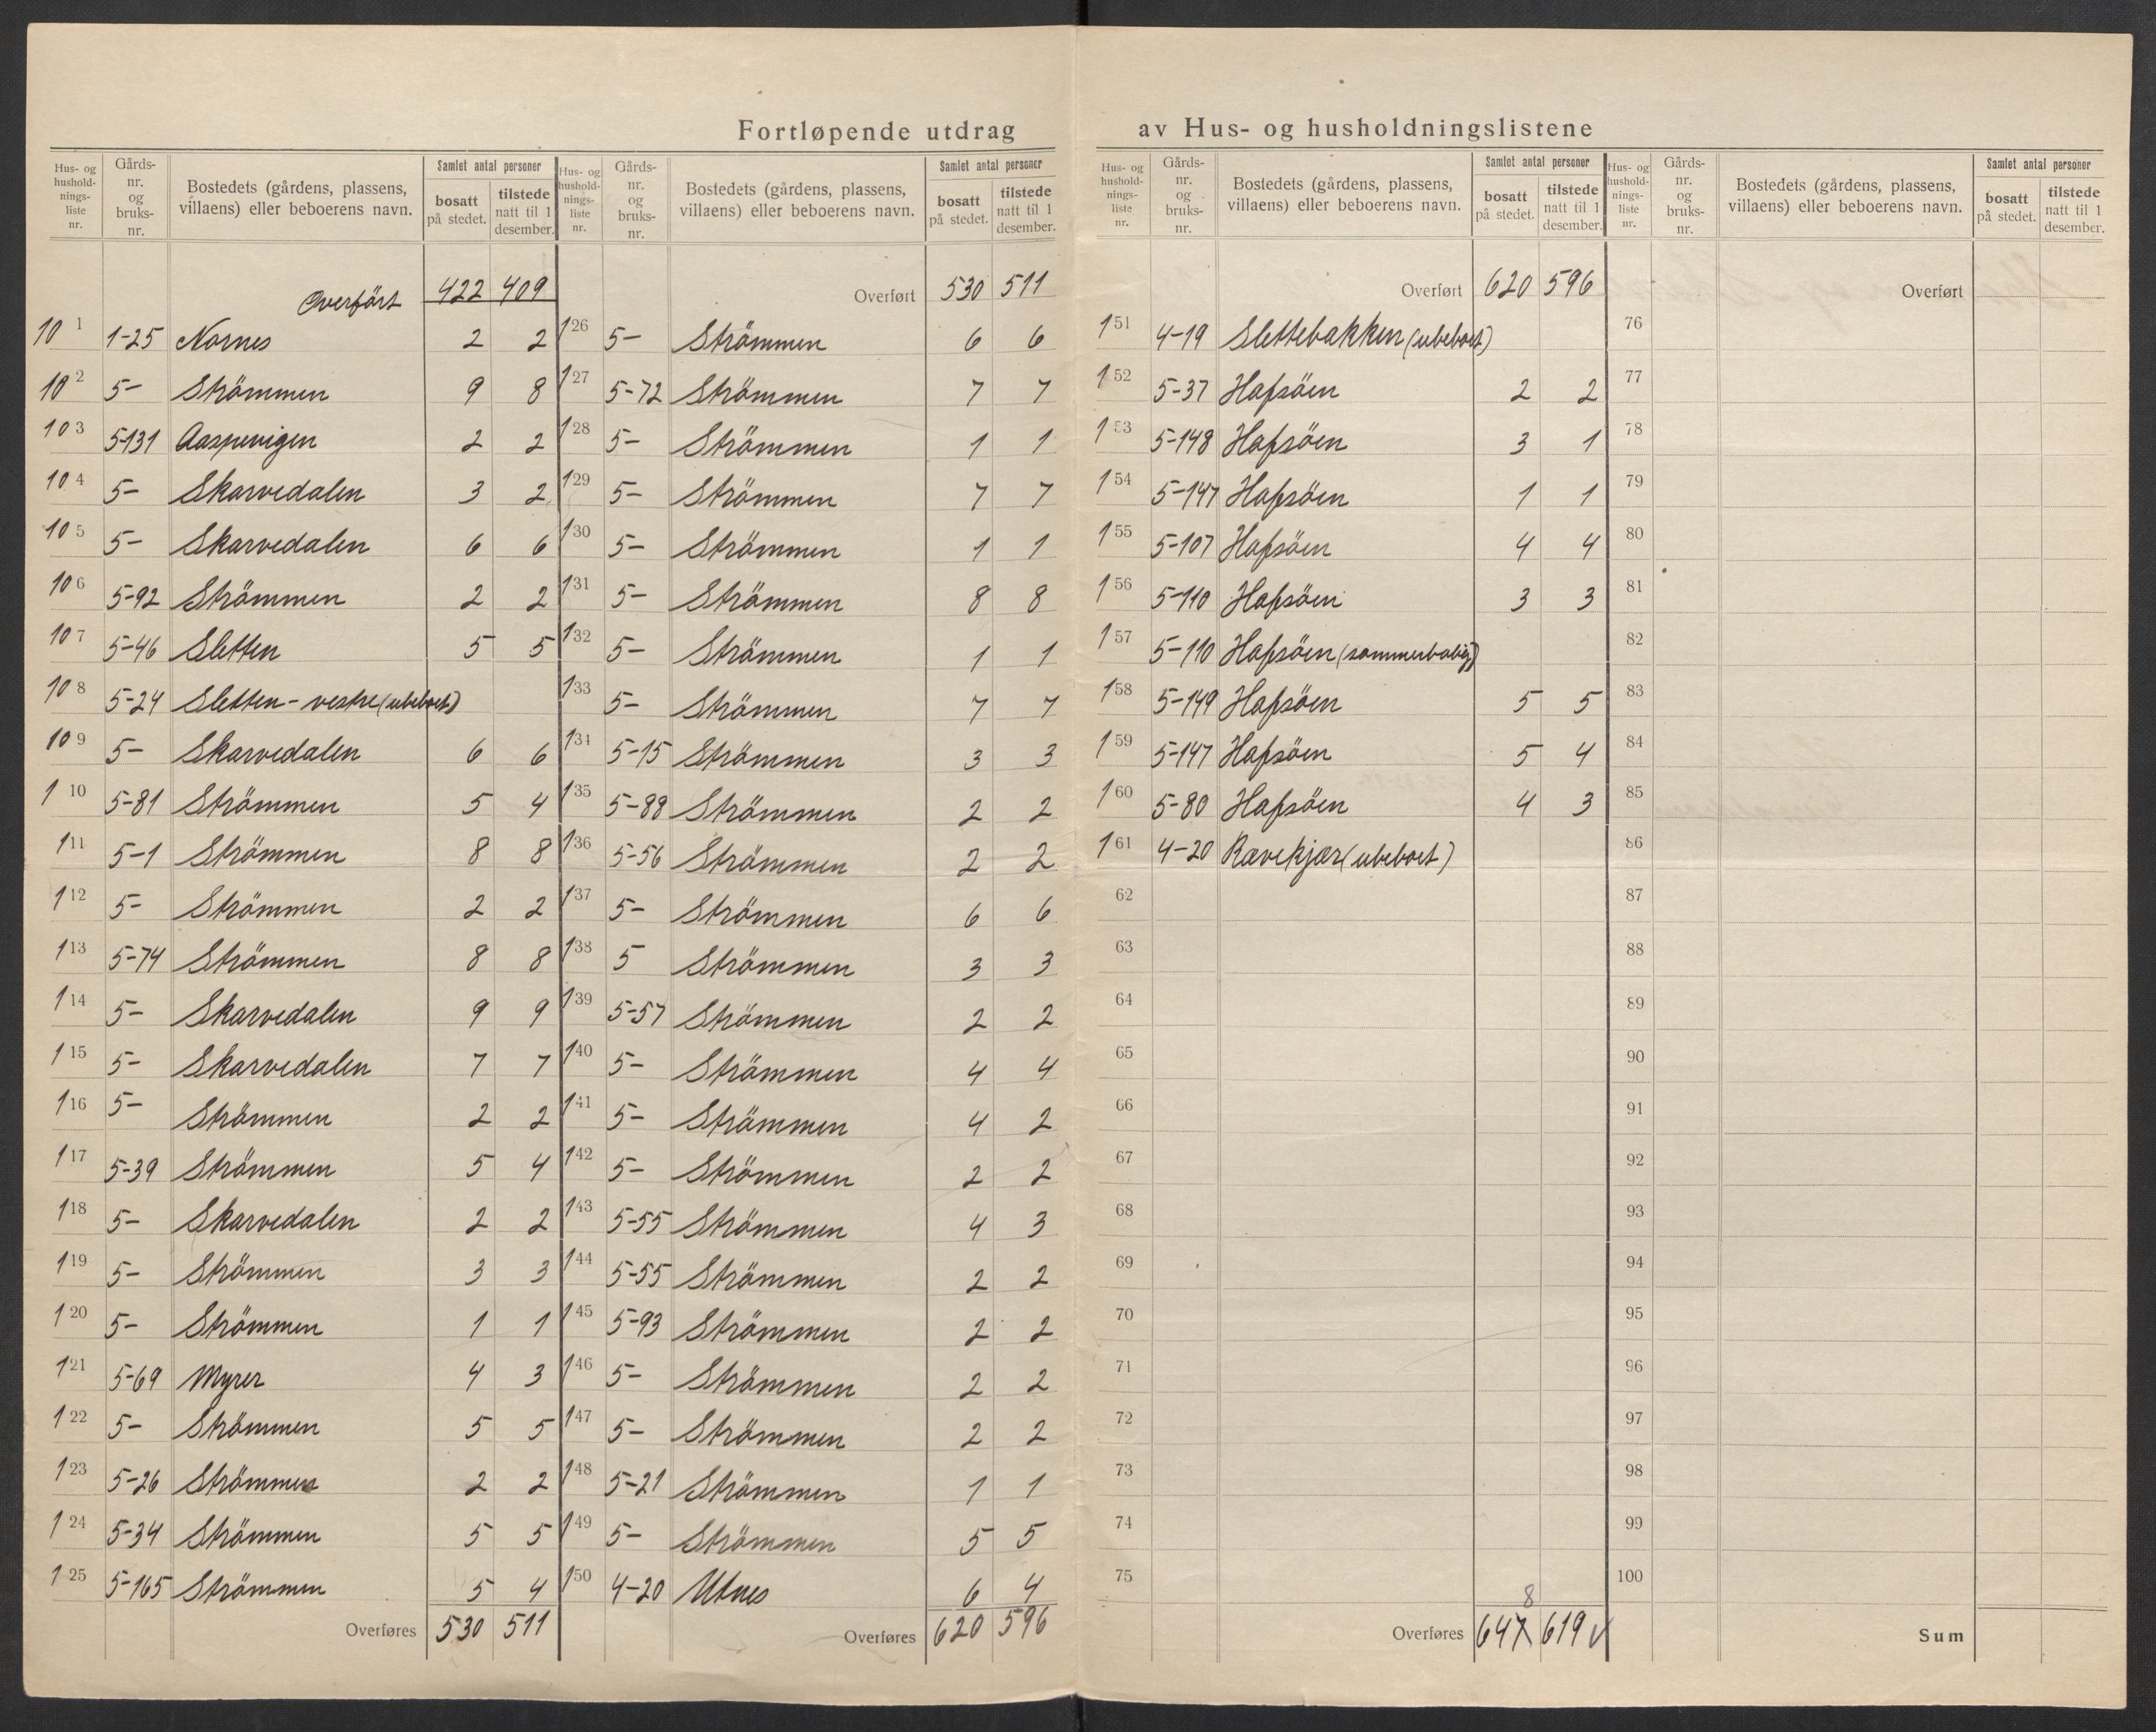 Fortløpende utdrag av Hus- og husholdningslistene
Hus- og husholdnings- liste nr. | Gårds- nr. og bruks- nr. | Bostedets (gårdens, plassens, villaens) eller beboerens navn. | Samlet antal personer | bosatt på stedet. | tilstede natt til 1 desember.
Overfört 422 409
101 1-25 Nornes 2 2
102 5- Strömmen 9 8
103 5-131 Aaspevigen 2 2
104 5- Skarvedalen 3 2
105 5- Skarvedalen 6 6
106 5-92 Strömmen 2 2
107 5-46 Sletten 5 5
108 5-24 Sletten-vestre (ubeboet)
109 5- Skarvedalen 6 6
110 5-81 Strömmen 5 4
111 5-1 Strömmen 8 8
112 5- Strömmen 2 2
113 5-74 Strömmen 8 8
114 5- Skarvedalen 9 9
115 5- Skarvedalen 7 7
116 5- Strömmen 2 2
117 5-39 Strömmen 5 4
118 5- Skarvedalen 2 2
119 5- Strömmen 3 3
120 5- Strömmen 1 1
121 5-69 Myrer 4 3
122 5- Strömmen 5 5
123 5-26 Strömmen 2 2
124 5-34 Strömmen 5 5
125 5-165 Strömmen 5 4
Overføres 530 511
Hus- og husholdnings- liste nr. | Gårds- nr. og bruks- nr. | Bostedets (gårdens, plassens, villaens) eller beboerens navn. | Samlet antal personer | bosatt på stedet. | tilstede natt til 1 desember.
Overført 530 511
126 5- Strömmen 6 6
127 5-72 Strömmen 7 7
128 5- Strömmen 1 1
129 5- Strömmen 7 7
130 5- Strömmen 1 1
131 5- Strömmen 8 8
132 5- Strömmen 1 1
133 5- Strömmen 7 7
134 5-15 Strömmen 3 3
135 5-88 Strömmen 2 2
136 5-56 Strömmen 2 2
137 5- Strömmen 6 6
138 5 Strömmen 3 3
139 5-57 Strömmen 2 2
140 5- Strömmen 4 4
141 5- Strömmen 4 2
142 5- Strömmen 2 2
143 5-55 Strömmen 4 3
144 5-55 Strömmen 2 2
145 5-93 Strömmen 2 2
146 5- Strömmen 2 2
147 5- Strömmen 2 2
148 5-21 Strömmen 1 1
149 5- Strömmen 5 5
150 4-20 Utnes 6 4
Overføres 620 596
Hus- og husholdnings- liste nr. | Gårds- nr. og bruks- nr. | Bostedets (gårdens, plassens, villaens) eller beboerens navn. | Samlet antal personer | bosatt på stedet. | tilstede natt til 1 desember.
Overført 620 596
151 4-19 Slettebakken (ubeboet)
152 5-37 Hafsöen 2 2
153 5-148 Hafsöen 3 1
154 5-147 Hafsöen 1 1
155 5-107 Hafsöen 4 4
156 5-110 Hafsöen 3 3
157 5-110 Hafsöen (sommerbolig)
158 5-149 Hafsöen 5 5
159 5-147 Hafsöen 5 4
160 5-80 Hafsöen 4 3
161 4-20 Rævekjær (ubeboet)
62
63
64
65
66
67
68
69
70
71
72
73
74
75
8
Overføres 647 619
Hus- og husholdnings- liste nr. | Gårds- nr. og bruks- nr. | Bostedets (gårdens, plassens, villaens) eller beboerens navn. | Samlet antal personer | bosatt på stedet. | tilstede natt til 1 desember.
Overført
76
77
78
79
80
81
82
83
84
85
86
87
88
89
90
91
92
93
94
95
96
97
98
99
100
Sum